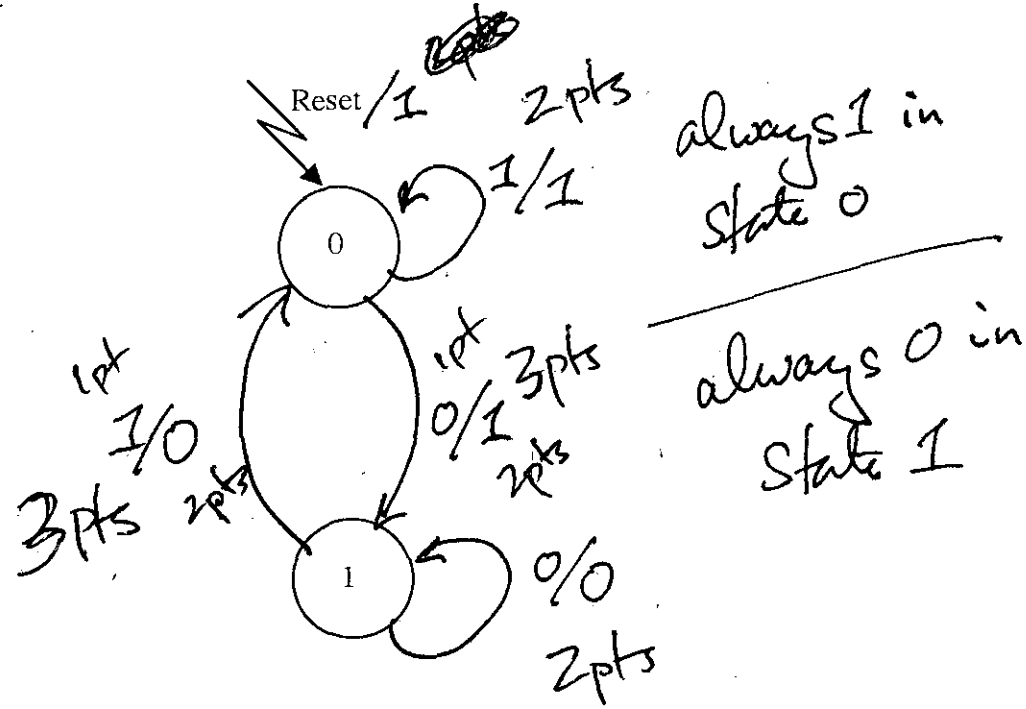 Reset /1
2pts
1/1
always 1 in
State 0
0
1pt
0/1 3pts
2pts
1pt
1/0
2pts
3pts
always 0 in
State 1
1
0/0
2pts